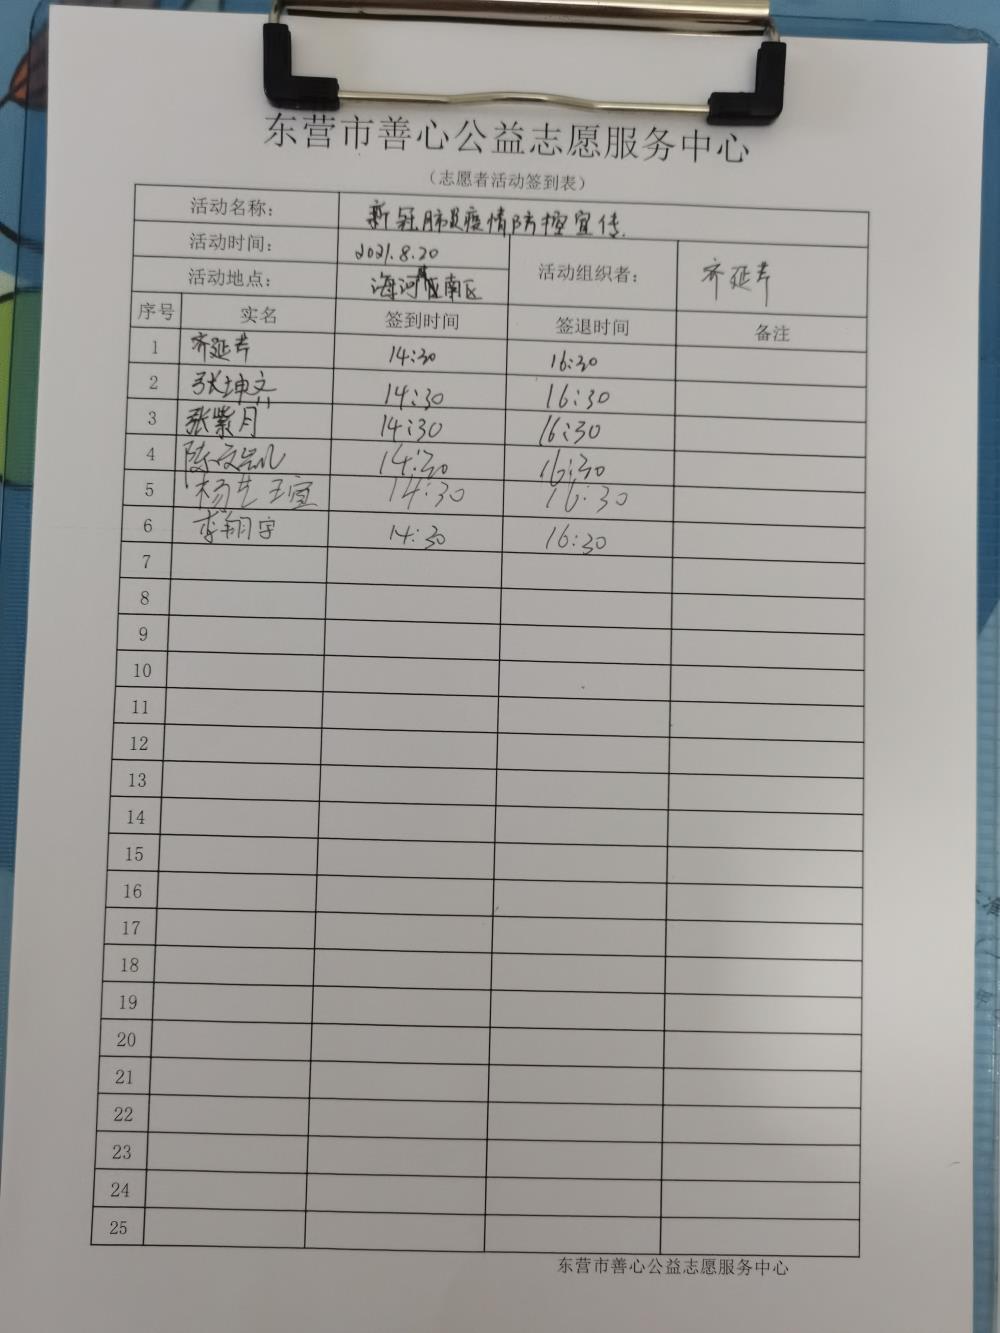 东营市善心公益志愿服务中心
（志愿者活动签到表）
活动名称： 新冠肺炎疫情防控宣传
活动时间： 2021.8.20 活动组织者： 齐延芹
活动地点： 海河小区南区
序号 实名 签到时间 签退时间 备注
1 齐延芹 14:30 16:30
2 张坤文 14:30 16:30
3 张紫月 14:30 16:30
4 陈 14:30 16:30
5 杨 14:30 16:30
6 李翔宇 14:30 16:30
7
8
9
10
11
12
13
14
15
16
17
18
19
20
21
22
23
24
25
东营市善心公益志愿服务中心